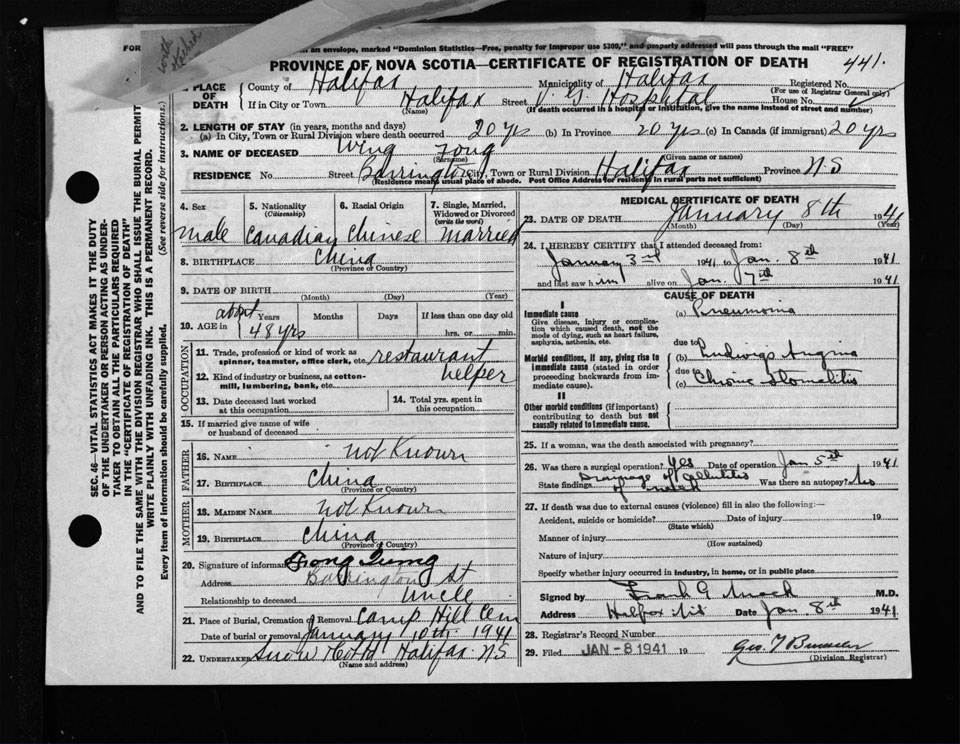 FOR
in an envelope, marked "Dominion Statistics—Free, penalty for improper use $300," and properly addressed will pass through the mail "FREE"
PROVINCE OF NOVA SCOTIA—CERTIFICATE OF REGISTRATION OF DEATH 441.
PLACE OF DEATH
County of Halifax Municipality of Halifax Registered No.
(For use of Registrar General only)
If in City or Town Halifax Street V. G. Hospital House No.
(Name) (If death occurred in a hospital or institution, give the name instead of street and number)
2. LENGTH OF STAY (in years, months and days)
(a) In City, Town or Rural Division where death occurred 20 yrs (b) In Province 20 yrs (c) In Canada (if immigrant) 20 yrs
3. NAME OF DECEASED Wing Fong
(Surname) (Given name or names)
RESIDENCE No. Street Barrington City, Town or Rural Division Halifax Province N S
(Residence means usual place of abode. Post Office Address for residents in rural parts not sufficient)
4. Sex 5. Nationality (Citizenship) 6. Racial Origin 7. Single, Married, Widowed or Divorced (write the word)
male Canadian Chinese Married
8. BIRTHPLACE China
(Province or Country)
9. DATE OF BIRTH
(Month) (Day) (Year)
10. AGE in about 48 yrs Years Months Days If less than one day old
hrs. or min.
OCCUPATION
11. Trade, profession or kind of work as spinner, teamster, office clerk, etc. restaurant
12. Kind of industry or business, as cotton-mill, lumbering, bank, etc. helper
13. Date deceased last worked at this occupation 14. Total yrs. spent in this occupation
15. If married give name of wife or husband of deceased
FATHER
16. NAME not Known
17. BIRTHPLACE China
(Province or Country)
MOTHER
18. MAIDEN NAME not Known
19. BIRTHPLACE China
(Province or Country)
20. Signature of informant
Address Barrington St
Relationship to deceased Uncle
21. Place of Burial, Cremation or Removal Camp Hill Cem
Date of burial or removal January 10th 1941
22. Undertaker Snow & Co Ltd Halifax N S
(Name and address)
MEDICAL CERTIFICATE OF DEATH
23. DATE OF DEATH January 8th 1941
(Month) (Day) (Year)
24. I HEREBY CERTIFY that I attended deceased from:
January 3rd 1941 to Jan. 8th 1941
and last saw him alive on Jan. 7th 1941
CAUSE OF DEATH
I
Immediate cause (a) Pneumonia
Give disease, injury or complication which caused death, not the mode of dying, such as heart failure, asphyxia, asthenia, etc.
due to
Morbid conditions, if any, giving rise to immediate cause (stated in order proceeding backwards from immediate cause). (b) Ludwigs Angina
due to
(c) Chronic stomatitis
II
Other morbid conditions (if important) contributing to death but not causally related to immediate cause.
25. If a woman, was the death associated with pregnancy?
26. Was there a surgical operation? Yes Date of operation Jan 5th 1941
State findings Drainage of cellulitis of neck Was there an autopsy? No
27. If death was due to external causes (violence) fill in also the following:—
Accident, suicide or homicide? Date of injury 19
(State which)
Manner of injury
(How sustained)
Nature of injury
Specify whether injury occurred in industry, in home, or in public place
Signed by Frank G Mack M.D.
Address Halifax N.S. Date Jan. 8th 1941
28. Registrar's Record Number
29. Filed JAN -8 1941 19
(Division Registrar)
SEC. 46—VITAL STATISTICS ACT MAKES IT THE DUTY
OF THE UNDERTAKER OR PERSON ACTING AS UNDER-
TAKER TO OBTAIN ALL THE PARTICULARS REQUIRED
IN THE "CERTIFICATE OF REGISTRATION OF DEATH"
AND TO FILE THE SAME WITH THE DIVISION REGISTRAR WHO SHALL ISSUE THE BURIAL PERMIT
WRITE PLAINLY WITH UNFADING INK. THIS IS A PERMANENT RECORD.
Every item of information should be carefully supplied. (See reverse side for instructions.)